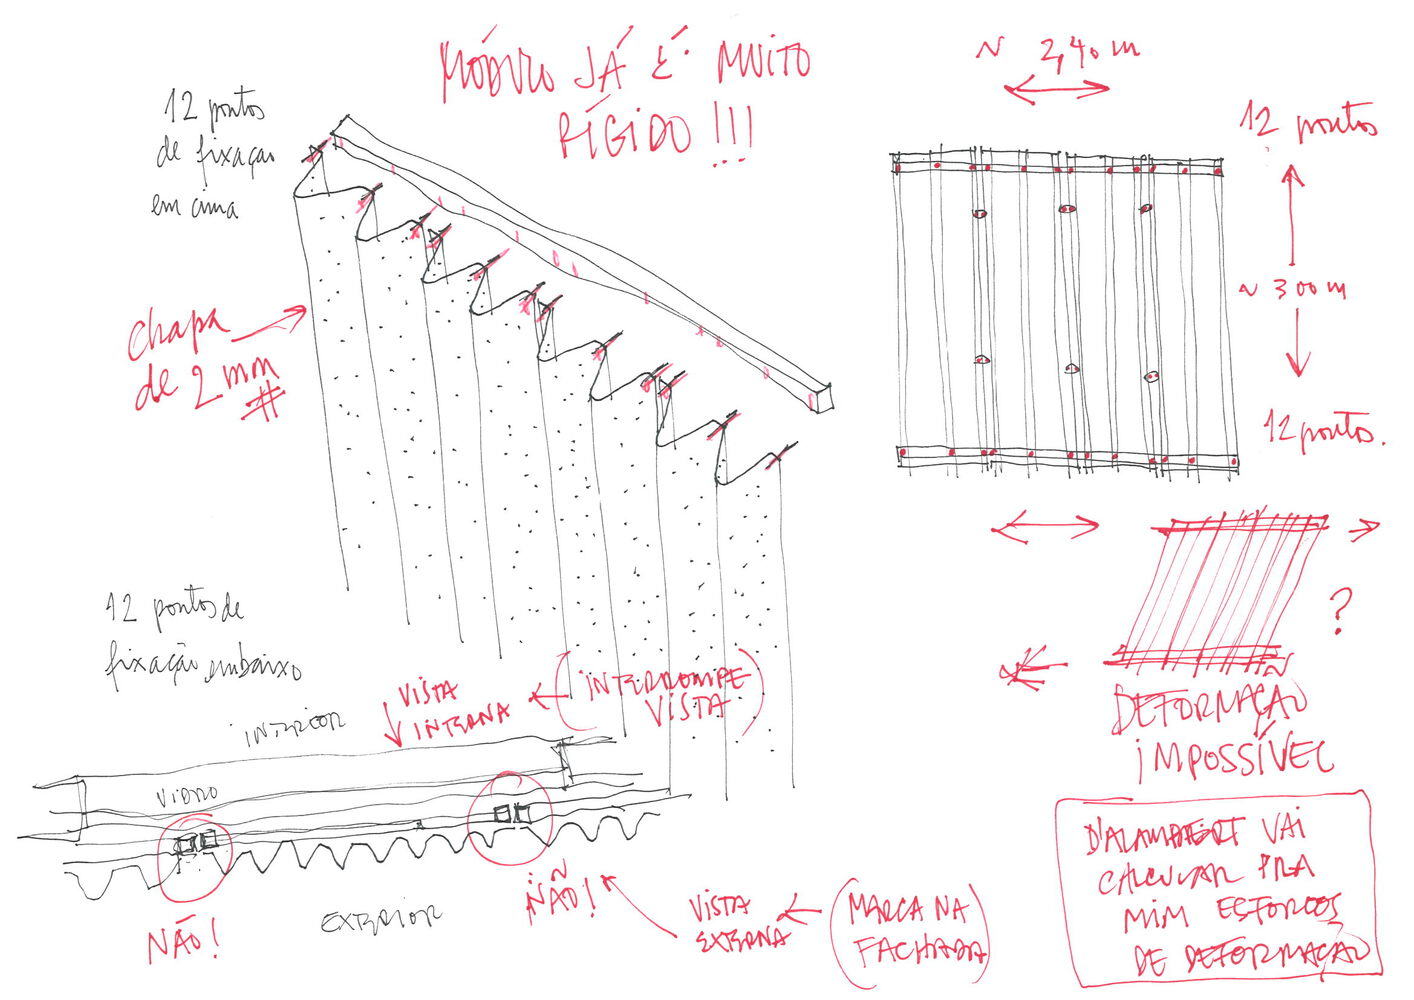 MÓDULO JÁ É MUITO
RÍGIDO!!!
~ 2,40 m
12 pontos
de fixação
em cima
12 pontos
~ 300 m
12 pontos.
chapa
de 2 mm
#
12 pontos de
fixação embaixo
?
DEFORMAÇÃO
IMPOSSÍVEL
INTERIOR
VISTA
INTERNA
(INTERROMPE
VISTA)
VIDRO
NÃO!
NÃO!
EXTERIOR
VISTA
EXTERNA
(MARCA NA
FACHADA)
D'ALAMBERT VAI
CALCULAR PRA
MIM ESFORÇOS
DE DEFORMAÇÃO